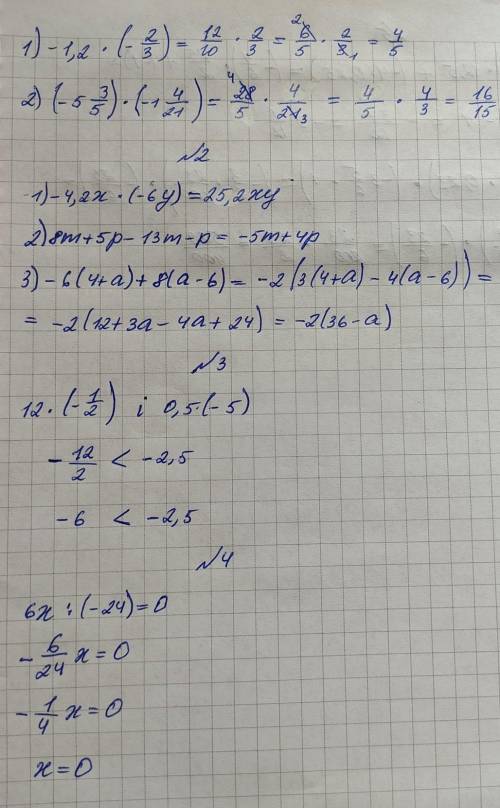 1) -1,2 · (-2/3) = 12/10 · 2/3 = 6/5 · 2/3 = 4/5
2) (-5 3/5) · (-1 4/21) = 28/5 · 4/21 = 4/5 · 4/3 = 16/15
№2
1) -4,2x · (-6y) = 25,2xy
2) 8m + 5p - 13m - p = -5m + 4p
3) -6(4+a) + 8(a-6) = -2(3(4+a) - 4(a-6)) =
= -2(12 + 3a - 4a + 24) = -2(36 - a)
№3
12 · (-1/2) і 0,5 · (-5)
-12/2 < -2,5
-6 < -2,5
№4
6x : (-24) = 0
-6/24 x = 0
-1/4 x = 0
x = 0